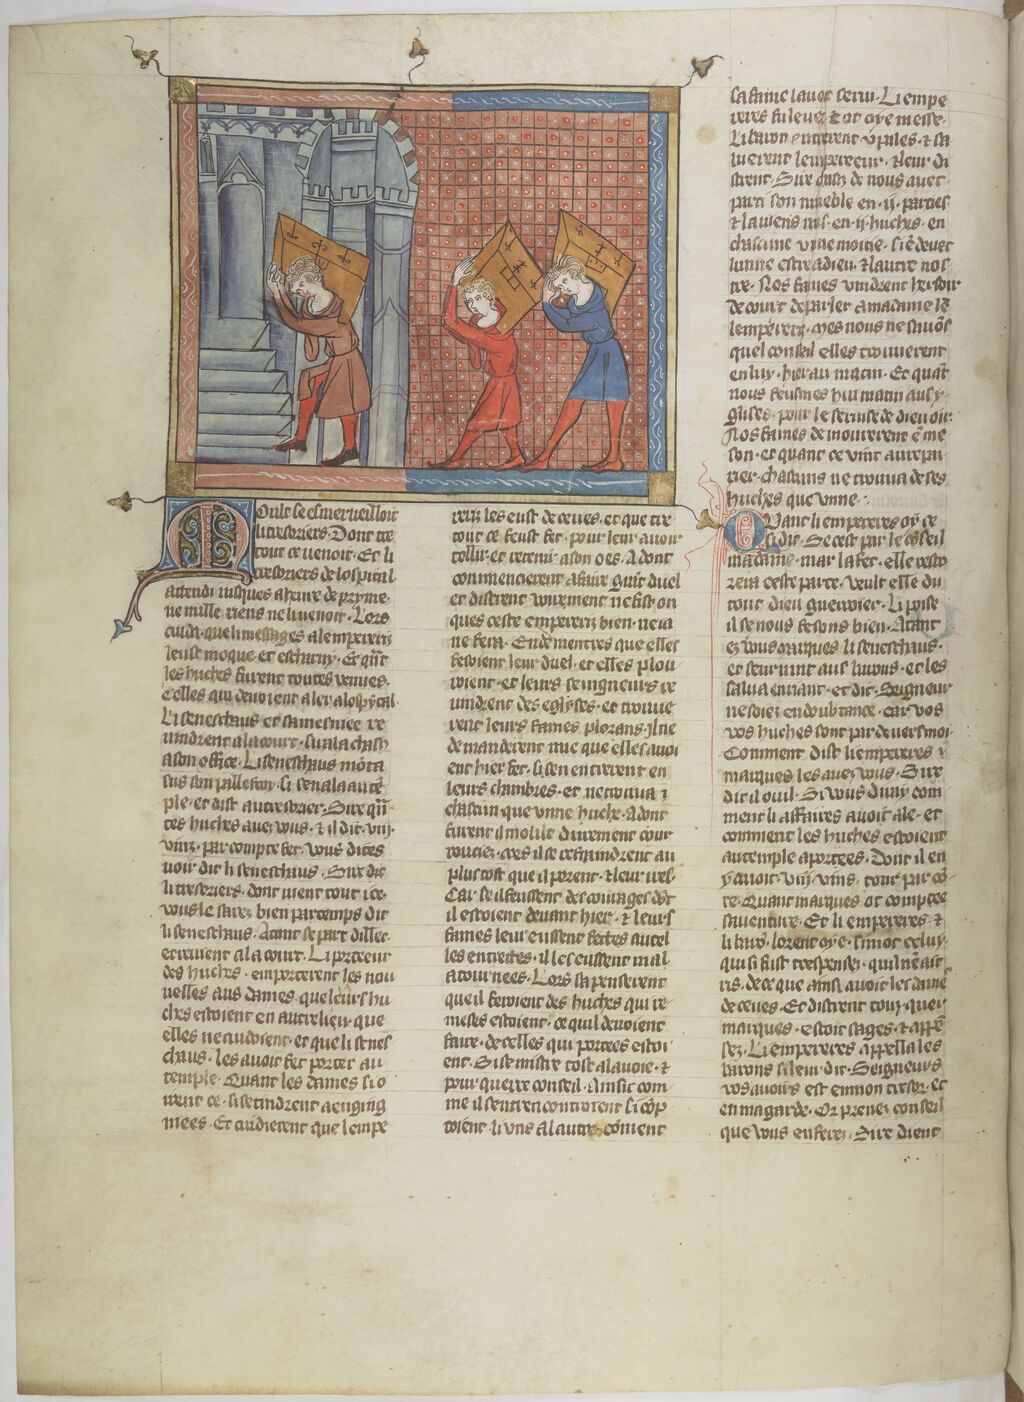 Moult se esmerveilloit
li tresoriers. Dont tre
tout ce venoit. Et li
tresoriers de lospital
attendi jusques a heure de pryme.
ne mille riens ne li venoit. Lors
cuida que li messages a lemperriz
leust moque et escharny. Et qñt
les huches furent toutes venues.
Celles qui devoient aler a lospytal
Li seneschaus et sa mesniee re
vindrent a la court. si ala chasc̄
a son office. Li seneschaus mōta
sus son pallefroy. si sen ala au tē
ple. et dist au tresorier. Sire qñ
tes huches avez vous. & il dit. viij.
vinz. par compte fet. vous dites
voir dit li seneschaus. Sire dit
li tresoriers. dont vient tout ice.
vous le sarez bien par temps dit
li seneschaus. Atant se part dillec.
et revient a la court. Li porteeur
des huches. emporterent les nou
velles aus dames. que leurs hu
ches estoient en autre lieu. que
elles ne cuidoient. et que li senes
chaus. les avoit fet porter au
temple. Quant les dames si o
irent ce. si se tindrent a enging
niees. Et cuidierent que lempe
reriz les eust deceues. et que tre
tout ce feust fet. pour leur avoir
tollir. et retenir a son oes. A dont
commencierent a faire grāt duel
et distrent voirement ne fist on
ques ceste empereriz bien. ne ia
ne fera. En dementres que elles
fesoient leur duel. et elles plou
roient. et leurs seingneurs re
vindrent des eglyses. et trouve
rent leurs fames plorans. Il ne
demanderent mie que elles avoi
ent hier fet. si sen entrerent en
leurs chambres. et ne trouva j
chascun que vnne huche. A dont
furent il moult durement cour
rouciez. mes il se refraindrent au
plus tost que il porent. & leur ires.
Car se il feussent des courages dōt
il estoient devant hier. & leurs
fames leur eussent fettes autel
les entrettes. il les eussent mal
atournees. Lors sapenserent
que il feroient des huches qui re
meses estoient. ce quil devoient
faire. de celles qui portees estoi
ent. Si se mistre tost a la voie. &
pour querre conseil. Ainsic com
me il sentrencontroient si cōp
toient li uns a lautre. cōment
sa fame lavoit servi. Li empe
reres fu levez & ot oye messe.
Li baron entrerent v pales. & sa
luerent lempereeur. & leur di
strent. Sire chasc̄ de nous avet
parti son mueble en .ij. parties
& laviens mis. en .ij. huches. en
chascune vnne moitie. si ē devet
lunne estre a dieu. & lautre nos
tre. Nos fames vindrent hersoir
de court de parler a ma dame lē
lempereriz. mes nous ne savōs
quel conseil elles trouverent
en luy. hier au matin. Et quāt
nous feusmes hui matin aus y
glises. pour le servise de dieu oir.
Nos fames demourerent ē me
son. et quant ce vint au repai
rier. chascuns ne trouva de ses
huches que vnne.
Quant li empereres oy ce
si dit. Se cest par le cōseil
ma dame. mar la fet. elle cesto
rera ceste parte. veult elle du
tout dieu guerroier. Li poise
il se nous fesons bien. Atant
ez vous marques li seneschaus.
et seurvint aus barons. et les
salua en riant. et dit. Seigneur
ne soiez en doubtance. car vos
vos huches sont par devers moi.
Comment dist li empereres &
marques les avez vous. Sire
dit il ouil. Si vous diray com
ment li affaires avoit ale. et
comment les huches estoient
au temple aportees. Dont il en
y avoit .viij. vins. tout par cō
te. Quant marques ot comptee
saventure. Et li empereres &
li barō. lorent oye. si niot celuy
qui si fust trespensez. quil nē ait
ris. de ce que ainsi avoit les dame
deceues. Et distrent touz. que
marques. estoit sages. & apē
sez. Li empereres appella les
barons si leur dit. Seigneurs
vos avoirs est en mon tresor. et
en ma garde. Or prenez conseil
que vous en ferez. Sire dient